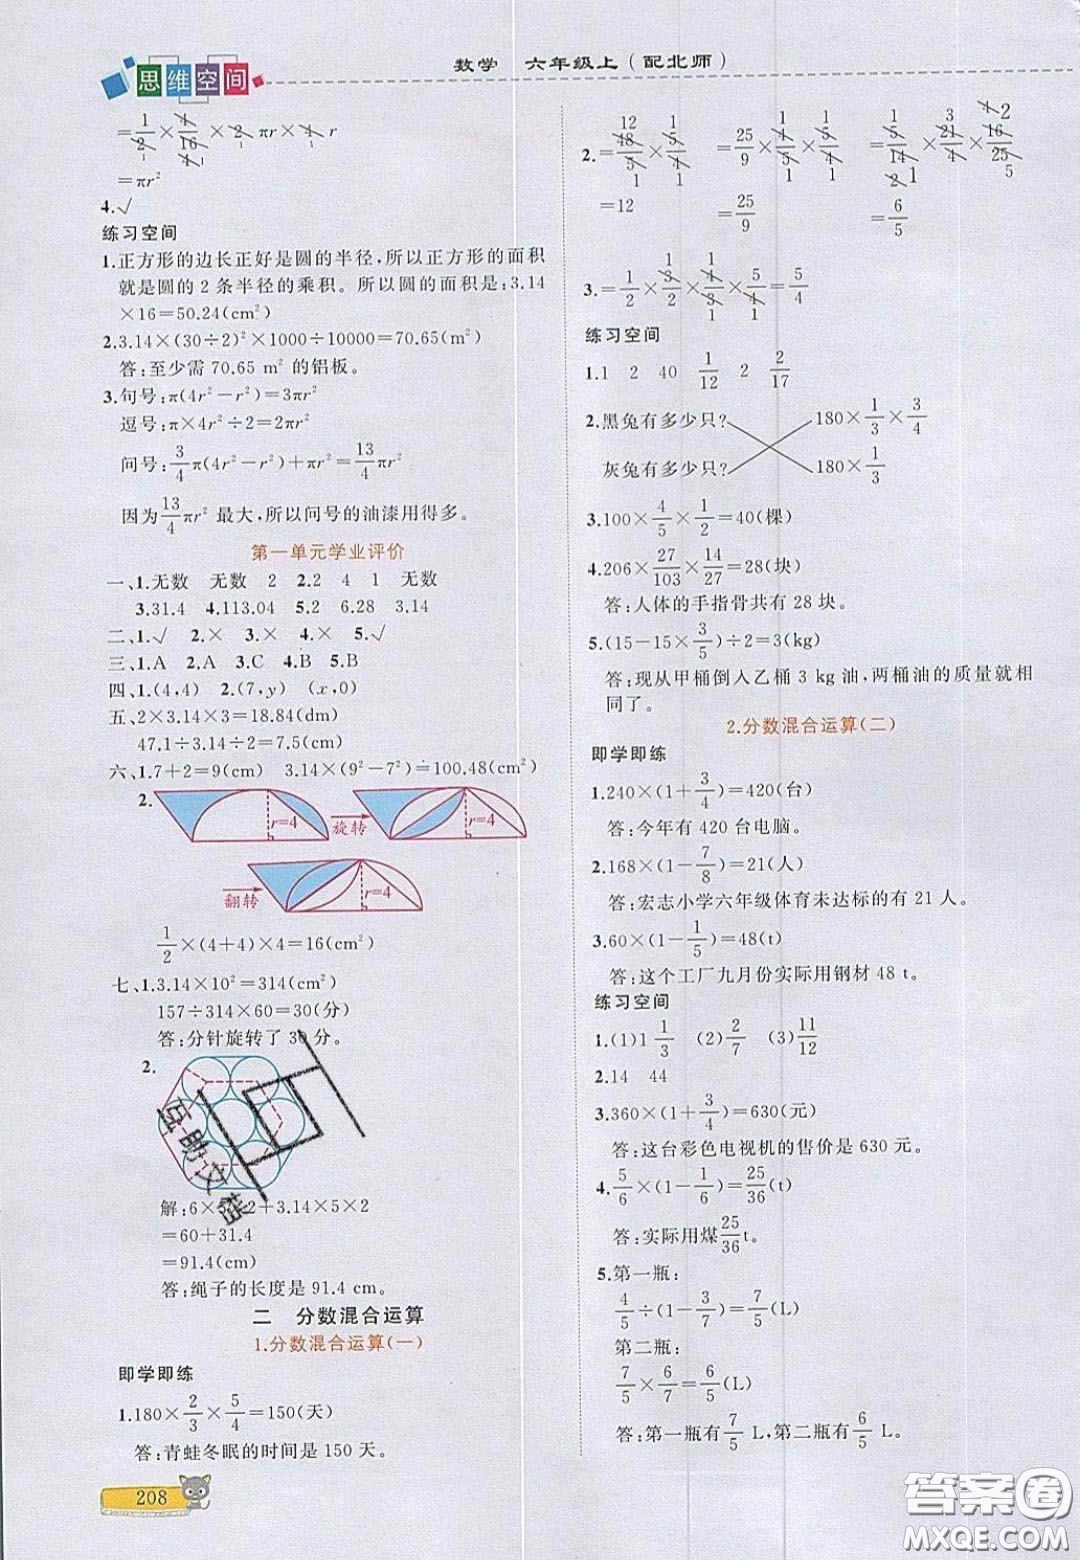 思维空间
数学 六年级上(配北师)
=1/2×4/16×2πr×4r
=πr²
4.√
练习空间
1.正方形的边长正好是圆的半径,所以正方形的面积
就是圆的2条半径的乘积。所以圆的面积是:3.14
×16=50.24(cm²)
2.3.14×(30÷2)²×1000÷10000=70.65(m²)
答:至少需70.65 m²的铝板。
3.句号:π(4r²-r²)=3πr²
逗号:π×4r²÷2=2πr²
问号:3/4π(4r²-r²)+πr²=13/4πr²
因为13/4πr²最大,所以问号的油漆用得多。
第一单元学业评价
一、1.无数 无数 2 2.2 4 1 无数
3.31.4 4.113.04 5.2 6.28 3.14
二、1.√ 2.× 3.× 4.× 5.√
三、1.A 2.A 3.C 4.B 5.B
四、1.(4,4) 2.(7,y) (x,0)
五、2×3.14×3=18.84(dm)
47.1÷3.14÷2=7.5(cm)
六、1.7+2=9(cm) 3.14×(9²-7²)÷=100.48(cm²)
2.
r=4 旋转 r=4
翻转 r=4
1/2×(4+4)×4=16(cm²)
七、1.3.14×10²=314(cm)
157÷314×60=30(分)
答:分针旋转了30分。
2.
互助文档
解:6×5×2+3.14×5×2
=60+31.4
=91.4(cm)
答:绳子的长度是91.4 cm。
二 分数混合运算
1.分数混合运算(一)
即学即练
1.180×2/3×5/4=150(天)
答:青蛙冬眠的时间是150天。
208
2.=48/5×5/4 =25/9×4/5×5/4 =5/14×21/25×16/5
=12 =25/9 =6/5
3.=1/2×3/4×4/3×5/4=5/4
练习空间
1.1 2 40 1/12 2 2/17
2.黑兔有多少只? 180×1/3×3/4
灰兔有多少只? 180×1/3
3.100×4/5×1/2=40(棵)
4.206×27/103×14/27=28(块)
答:人体的手指骨共有28块。
5.(15-15×3/5)÷2=3(kg)
答:现从甲桶倒入乙桶3 kg油,两桶油的质量就相
同了。
2.分数混合运算(二)
即学即练
1.240×(1+3/4)=420(台)
答:今年有420台电脑。
2.168×(1-7/8)=21(人)
答:宏志小学六年级体育未达标的有21人。
3.60×(1-1/5)=48(t)
答:这个工厂九月份实际用钢材48 t。
练习空间
1.(1)1 1/3 (2)2/7 (3)11/12
2.14 44
3.360×(1+3/4)=630(元)
答:这台彩色电视机的售价是630元。
4.5/6×(1-1/6)=25/36(t)
答:实际用煤25/36t。
5.第一瓶:
4/5÷(1-3/7)=7/5(L)
第二瓶:
7/5×6/7=6/5(L)
答:第一瓶有7/5 L,第二瓶有6/5 L。
答案圈
MXQE.COM